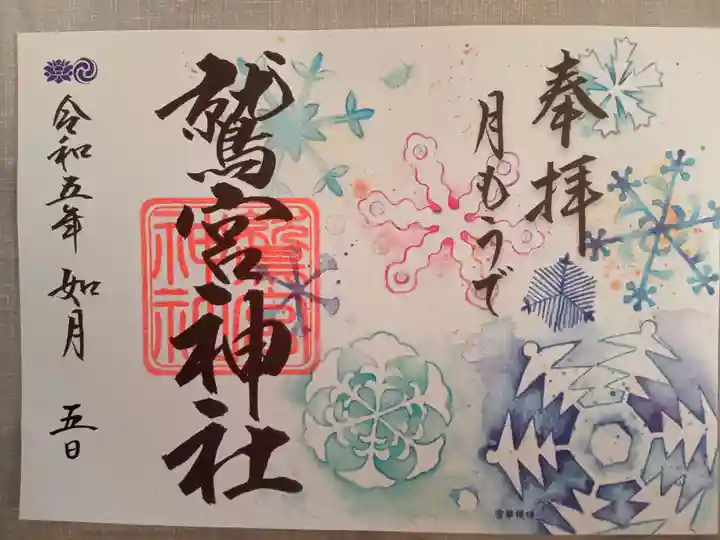 奉拝
月もうで
鷲宮神社
鷲宮
神社
令和五年 如月 五日
雪華模様